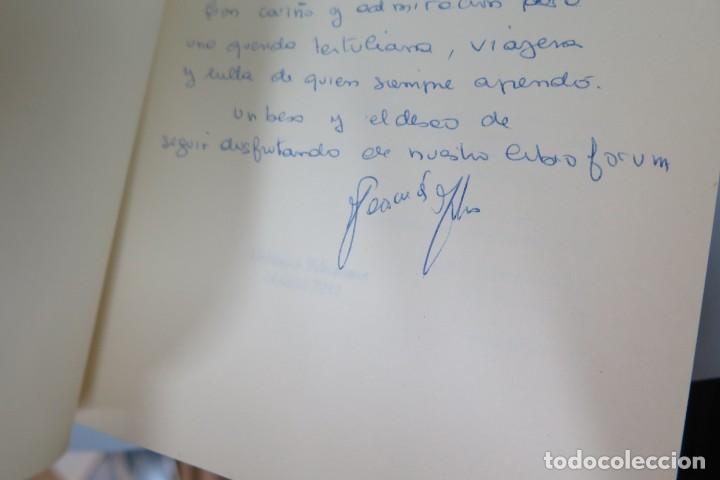 Con cariño y admiración para
una querida tertuliana, viajera
y culta de quien siempre aprendo.
un beso y el deseo de
seguir disfrutando de nuestro libro forum
todocoleccion